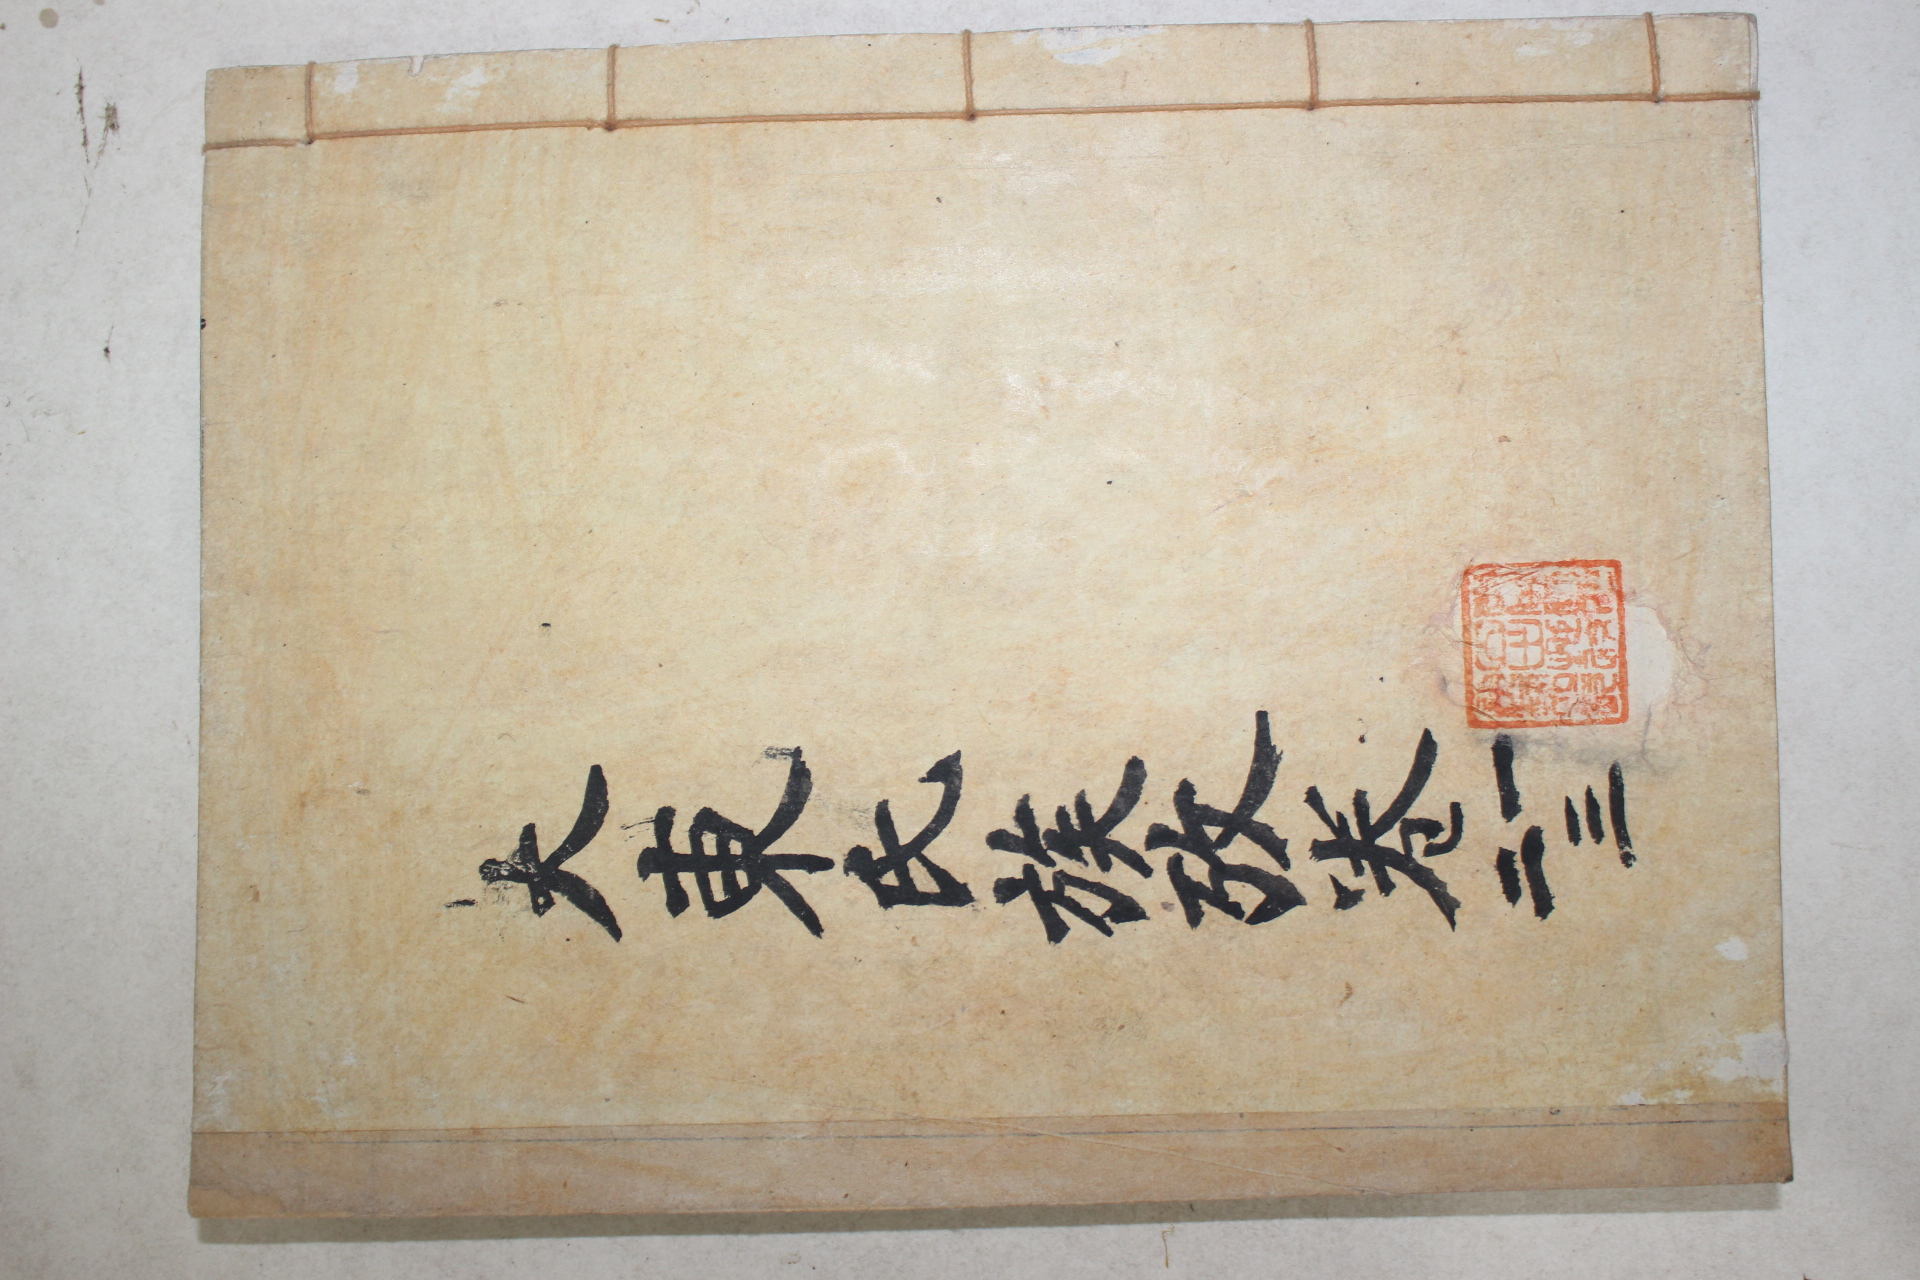 大東氏族攷卷
一
二
三